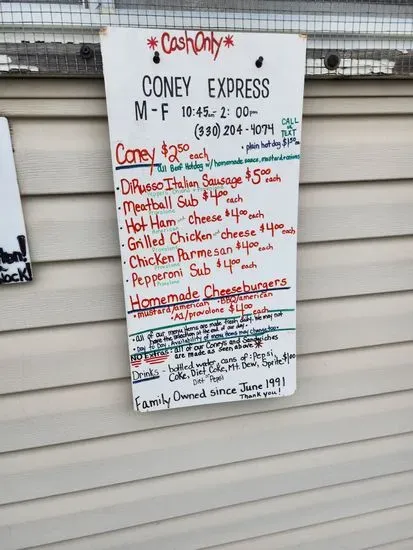 *CashOnly*
CONEY EXPRESS
M-F 10:45am - 2:00pm
(330) 204-4074 CALL or TEXT
Coney $2.50 each • plain hotdog $1.50
all Beef Hotdog w/ homemade sauce, mustard, onions
• DiRusso Italian Sausage $5.00 each
Peppers, Onions, Provolone
• Meatball Sub $4.00 each
Provolone
• Hot Ham and cheese $4.00 each
American
• Grilled Chicken and cheese $4.00 each
Provolone
• Chicken Parmesan $4.00 each
Provolone
• Pepperoni Sub $4.00 each
Provolone
Homemade Cheeseburgers
• mustard/american • BBQ/american
• A1/provolone $4.00 each
• all of our menu items are made fresh daily. We may not
have the selection at the end of our day.
• Day to Day, availability of menu items may change too.
NO Extras: all of our Coneys and Sandwiches
are made as seen above *
Drinks - bottled water, cans of: Pepsi,
Coke, Diet Coke, Mt. Dew, Sprite $1.00
Diet Pepsi
Family Owned since June 1991
Thank you!